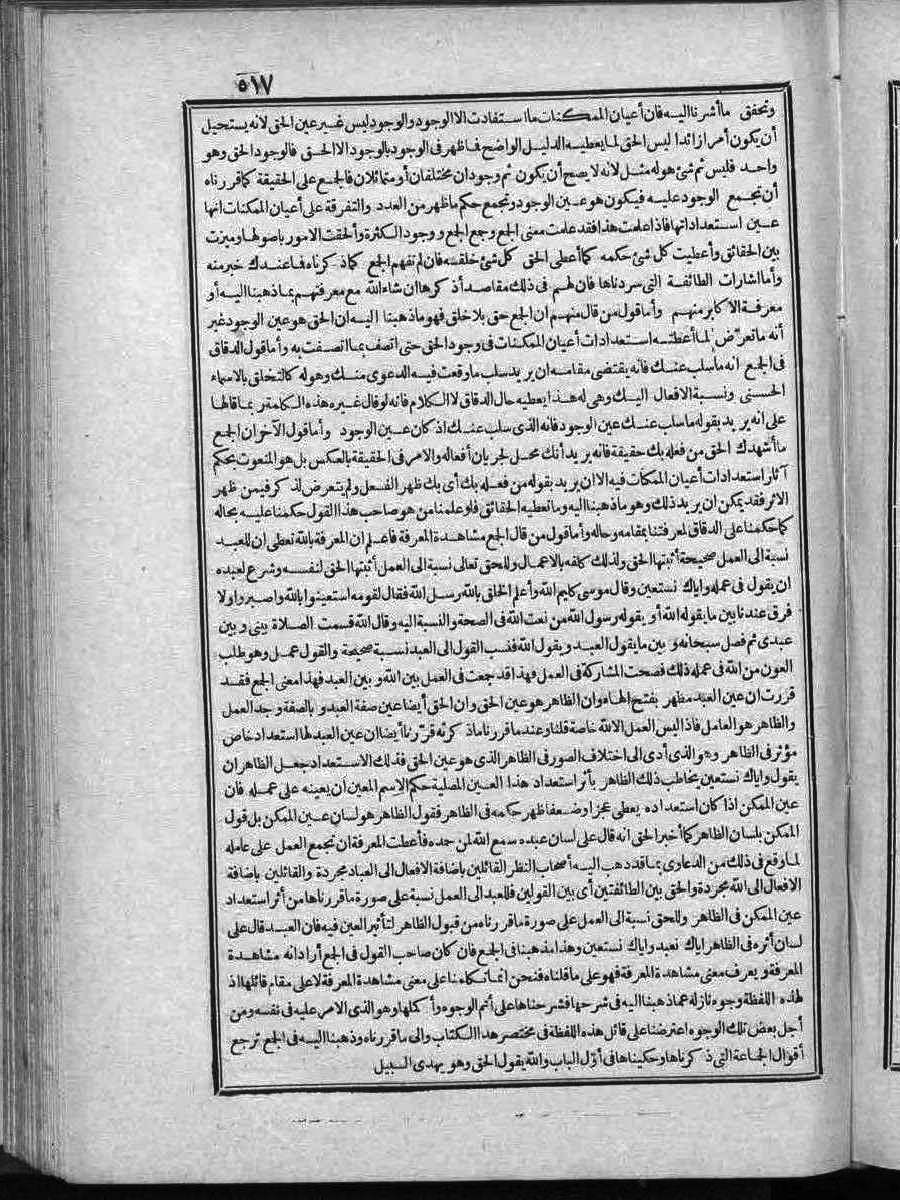 ٥١٧
وتحقق ما أشرنا اليه فان أعيان الممكنات ما استفادت الا الوجود والوجود ليس غير عين الحق لانه يستحيل
أن يكون أمرا زائدا ليس الحق لما يعطيه الدليل الواضح فما ظهر فى الوجود بالوجود الا الحق فالوجود الحق وهو
واحد فليس ثم شئ هو له مثل لانه لا يصح أن يكون ثم وجودان مختلفان أو متماثلان فالجمع على الحقيقة كما قررناه
أن تجمع الوجود عليه فيكون هو عين الوجود وتجمع حكم ما ظهر من العدد والتفرقة على أعيان الممكنات انها
عين استعداداتها فاذا علمت هذا فقد علمت معنى الجمع وجمع الجمع ووجود الكثرة وألحقت الامور باصولها وميزت
بين الحقائق وأعطيت كل شئ حكمه كما أعطى الحق كل شئ خلقه فان لم تفهم الجمع كما ذكرناه فما عندك خبر منه
وأما اشارات الطائفة التى سردناها فان لهم فى ذلك مقاصد أذكرها ان شاء الله مع معرفتهم بما ذهبنا اليه أو
معرفة الأكابر منهم وأما قول من قال منهم ان الجمع حق بلا خلق فهو ما ذهبنا اليه ان الحق هو عين الوجود غير
أنه ما تعرّض لما أعطته استعدادات أعيان الممكنات فى وجود الحق حتى اتصف بما اتصفت به وأما قول الدقاق
فى الجمع انه ما سلب عنك فانه يقتضى مقامه ان يريد سلب ما وقعت فيه الدعوى منك وهو له كالتخلق بالاسماء
الحسنى ونسبة الافعال اليك وهى له هذا يعطيه حال الدقاق لا الكلام فانه لو قال غيره هذه الكلمة ربما قالها
على انه يريد بقوله ما سلب عنك عين الوجود فانه الذى سلب عنك اذ كان عين الوجود وأما قول الآخر ان الجمع
ما أشهدك الحق من فعله بك حقيقة فانه يريد أنك محل لجريان أفعاله والامر فى الحقيقة بالعكس بل هو المنعوت بحكم
آثار استعدادات أعيان الممكنات فيه الا ان يريد بقوله من فعله بك أى بك ظهر الفعل ولم يتعرض لذكر فيمن ظهر
الاثر فقد يمكن ان يريد ذلك وهو ما ذهبنا اليه وما تعطيه الحقائق فلو علمنا من هو صاحب هذا القول حكمنا عليه بحاله
كما حكمنا على الدقاق لمعرفتنا بمقامه وحاله وأما قول من قال الجمع مشاهدة المعرفة فاعلم ان المعرفة بالله تعطى ان للعبد
نسبة الى العمل صحيحة أثبتها الحق ولذلك كلفه بالاعمال وللحق تعالى نسبة الى العمل أثبتها الحق لنفسه وشرع لعبده
ان يقول فى عمله واياك نستعين وقال موسى كليم الله وأعلم الخلق بالله رسل الله فقال لقومه استعينوا بالله واصبروا ولا
فرق عندنا بين ما يقوله الله أو يقوله رسول الله من نعت الله فى الصحة والنسبة اليه وقال الله قسمت الصلاة بينى وبين
عبدى ثم فصل سبحانه و بين ما يقول العبد و يقول الله فنسب القول الى العبد نسبة صحيحة والقول عمل وهو طلب
العون من الله فى عمله ذلك فصحت المشاركة فى العمل فهذا قد جمعت فى العمل بين الله و بين العبد فهذا معنى الجمع فقد
قررت ان عين العبد مظهر بفتح الهاء وان الظاهر هو عين الحق وان الحق أيضا عين صفة العبد و بالصفة وجد العمل
والظاهر هو العامل فاذا ليس العمل الا لله خاصة قلنا وعندما قررنا ما ذكرته قرّرنا أيضا ان عين العبد لها استعداد خاص
مؤثر فى الظاهر وهو الذى أدى الى اختلاف الصور فى الظاهر الذى هو عين الحق فذلك الاستعداد جعل الظاهر ان
يقول واياك نستعين يخاطب ذلك الظاهر بأثر استعداد هذا العين المصلية حكم الاسم المعين ان يعينه على عمله فان
عين الممكن اذا كان استعداده يعطى عجزا وضعفا ظهر حكمه فى الظاهر فقول الظاهر هو لسان عين الممكن بل قول
الممكن بلسان الظاهر كما أخبر الحق انه قال على لسان عبده سمع الله لمن حمده فأعطت المعرفة ان تجمع العمل على عامله
لما وقع فى ذلك من الدعاوى بما قد ذهب اليه أصحاب النظر القائلين باضافة الافعال الى العباد مجردة والقائلين باضافة
الافعال الى الله مجردة والحق بين الطائفتين أى بين القولين فللعبد الى العمل نسبة على صورة ما قررناها من أثر استعداد
عين الممكن فى الظاهر وللحق نسبة الى العمل على صورة ما قررناه من قبول الظاهر لتأثير العين فيه فان العبد قال على
لسان أثره فى الظاهر اياك نعبد واياك نستعين وهذا مذهبنا فى الجمع فان كان صاحب القول فى الجمع أراد انه مشاهدة
المعرفة و يعرف معنى مشاهدة المعرفة فهو على ما قلناه فنحن انما تكلمنا على معنى مشاهدة المعرفة لا على مقام قائلها اذ
لهذه اللفظة وجوه نازلة عما ذهبنا اليه فى شرحها فشرحناها على أتم الوجوه وأكملها وهو الذى الامر عليه فى نفسه ومن
أجل بعض تلك الوجوه اعترضنا على قائل هذه اللفظة فى مختصر هذا الكتاب والى ما قررناه وذهبنا اليه فى الجمع ترجع
أقوال الجماعة التى ذكرناها وحكيناها فى أوّل الباب والله يقول الحق وهو يهدى السبيل